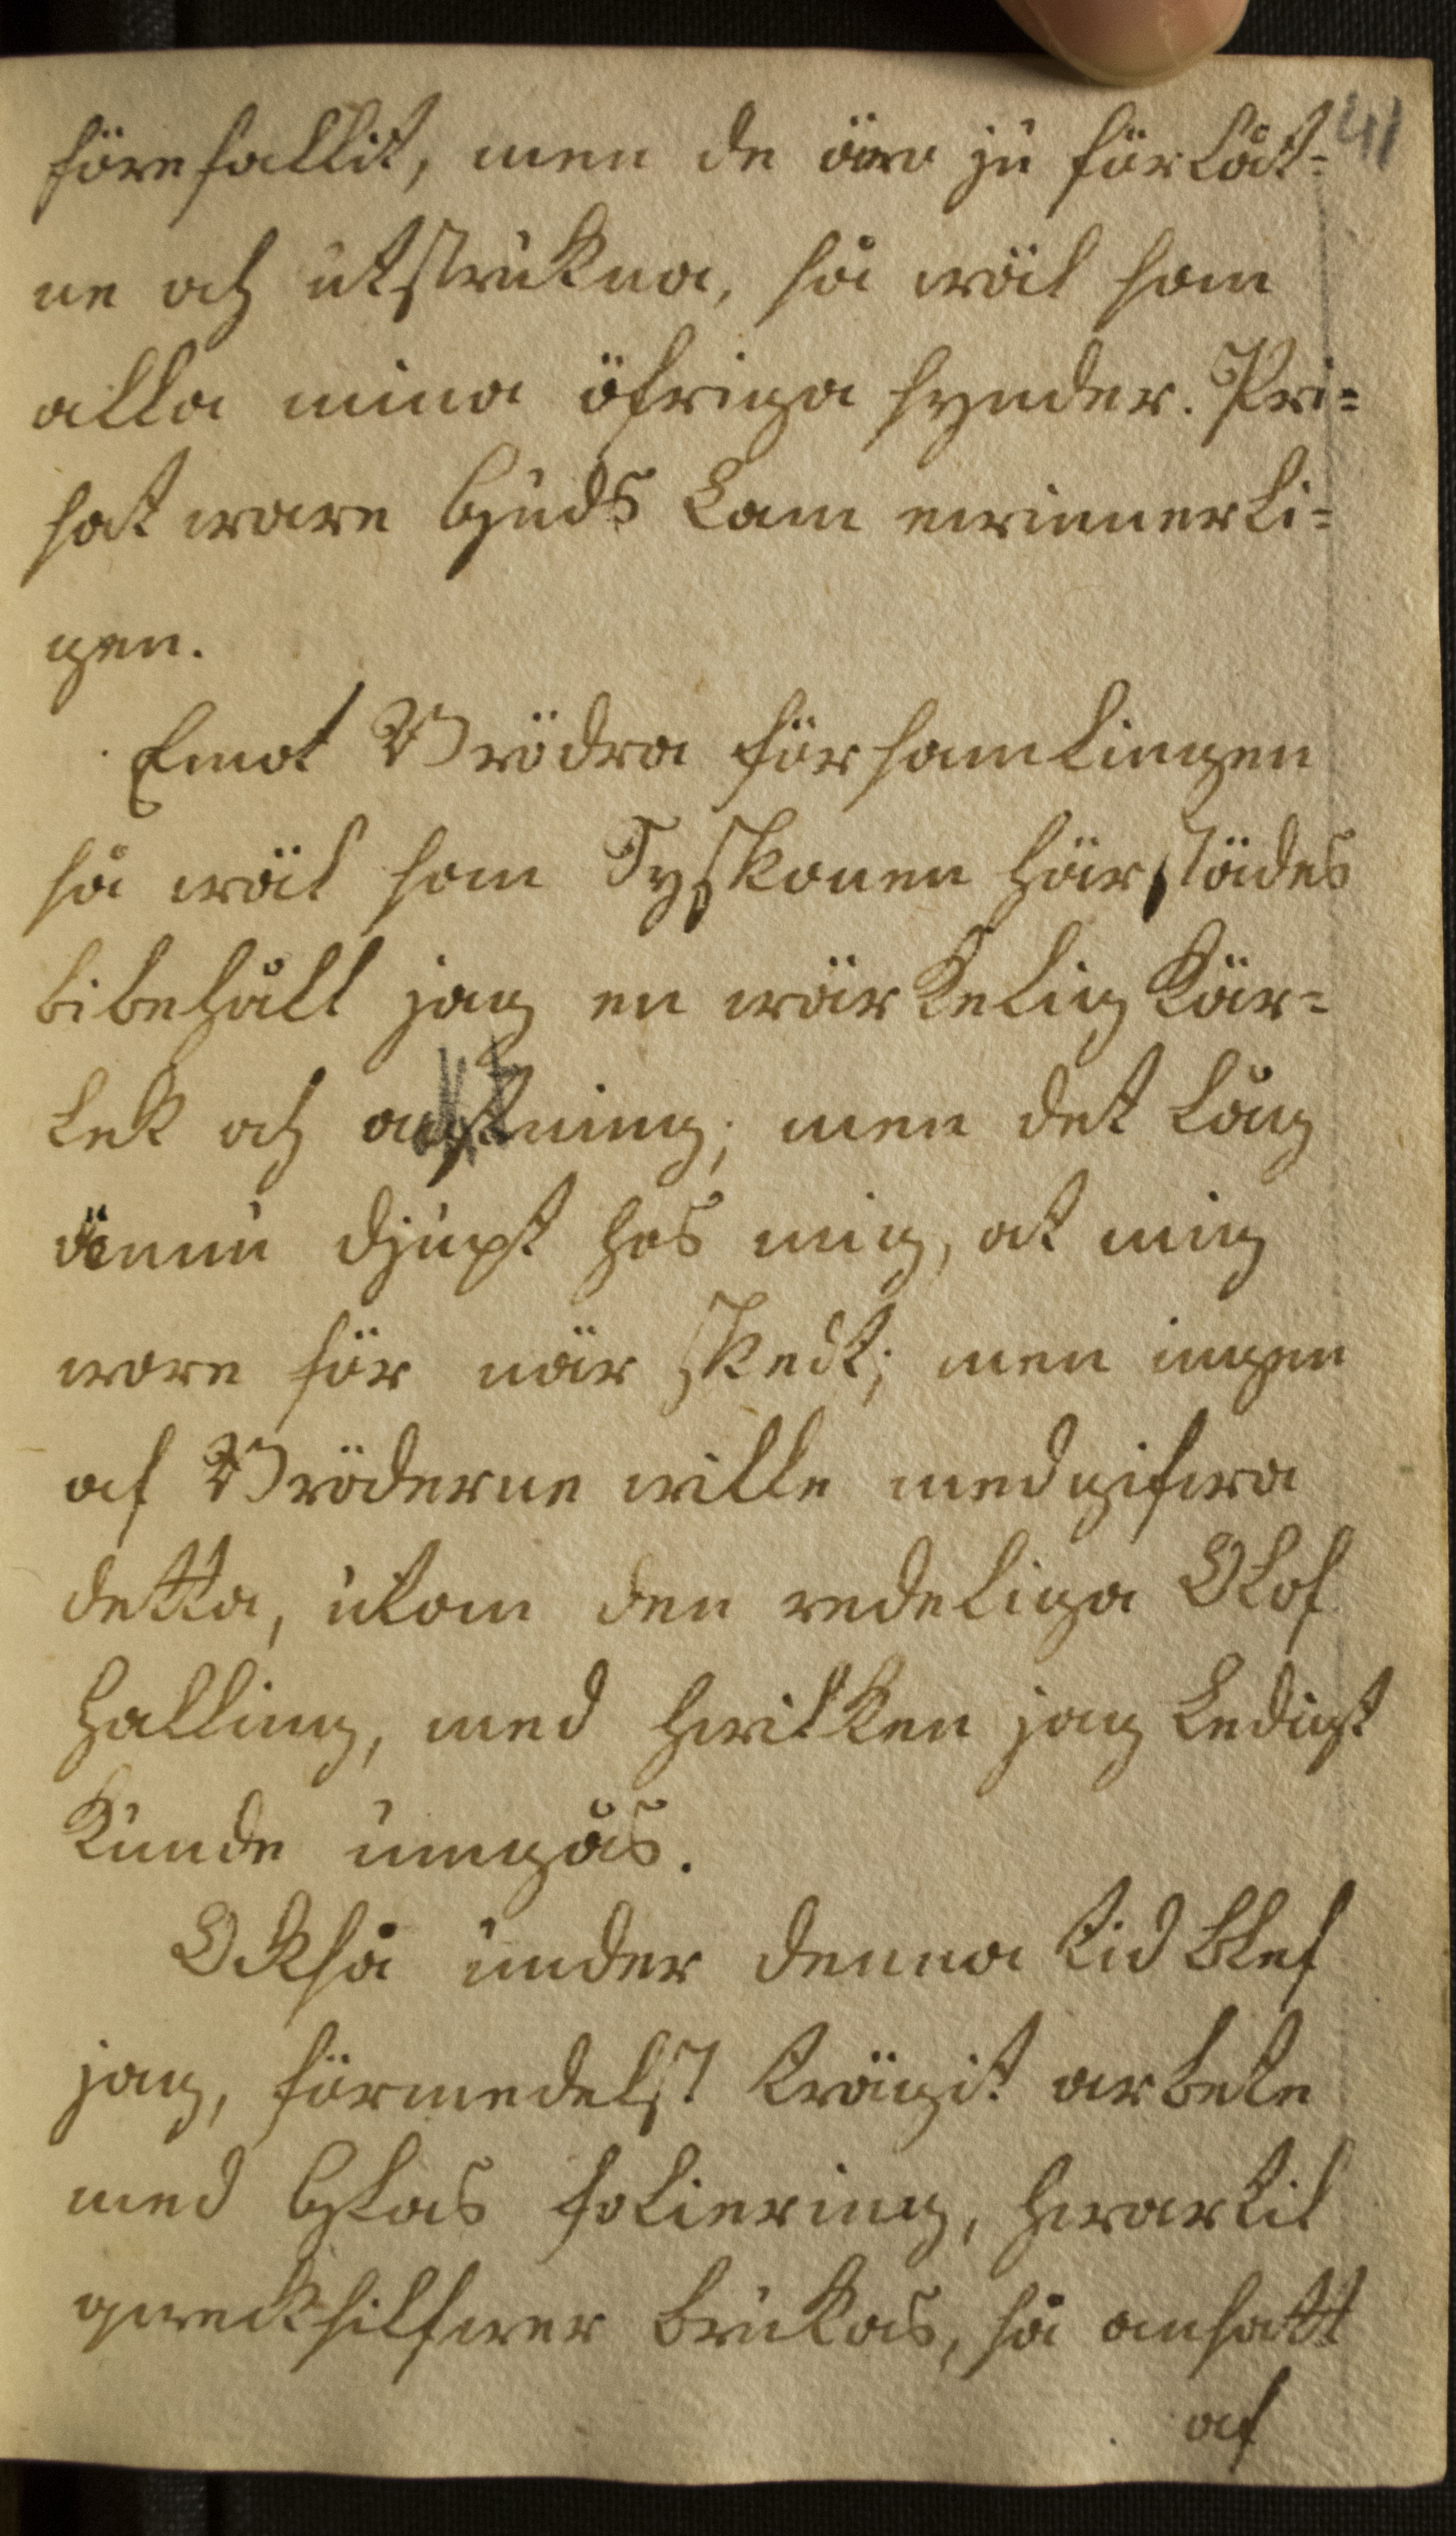 41
förefallit, men de äro ju förlåt-
ne och utstrukna, så wäl som
alla mina öfriga synder. Pri-
sat ware Guds Lam ewinnerli-
gen.
Emot Brödra församlingen
så wäl som Syskonen härstädes
bibehålt jag en wärkelig kär-
lek och aktning; men det låg
ännu djupt hos mig, at mig
wore för när skedt; men ingen
af Bröderne wille medgifwa
detta, utom den redeliga Olof
Halling, med hwilken jag ledigt
kunde umgås.
Också under denna tid blef
jag, förmedelst trägit arbete
med Glas foliering, hwartil
qweksilfwer brukas, så ansatt
af